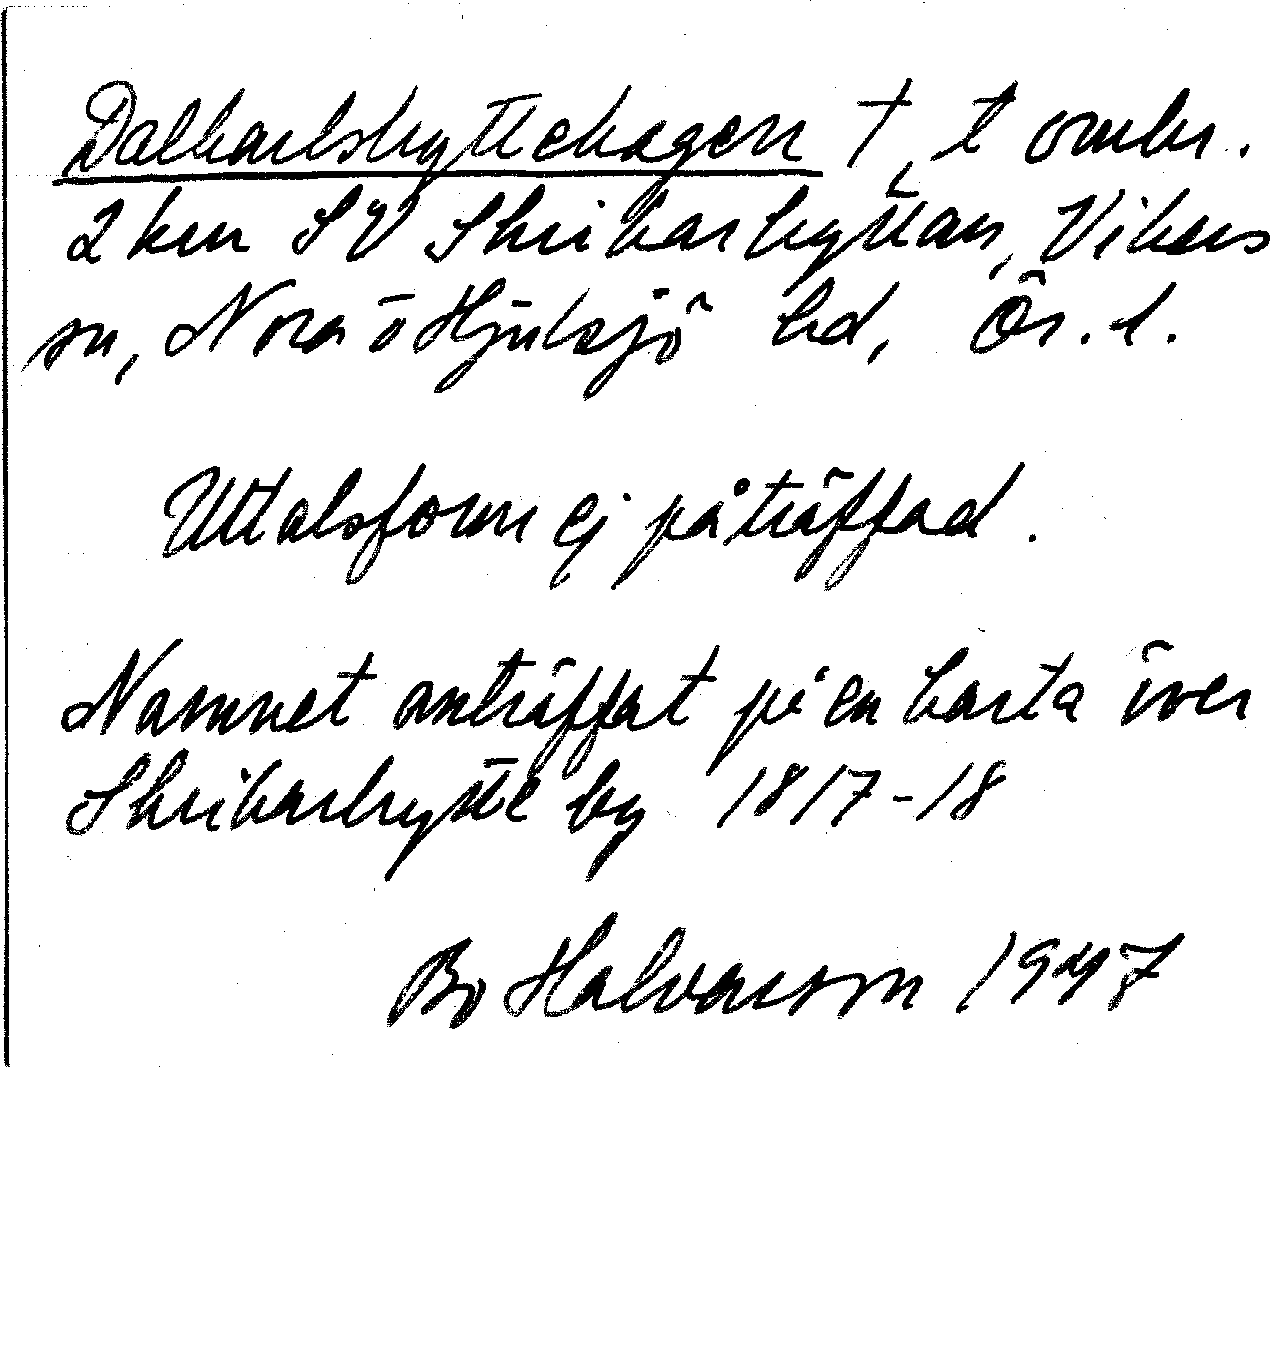 Dalkarlshyttehagen †, t område.
2 km SV Skrikarhyttan, Vikers
sn, Nora o Hjulsjö bd, Ör. l.
Uttalsform ej påträffad.
Namnet anträffat på en karta över
Skrikarhytte by 1817-18
Bo Halvarsson 1947